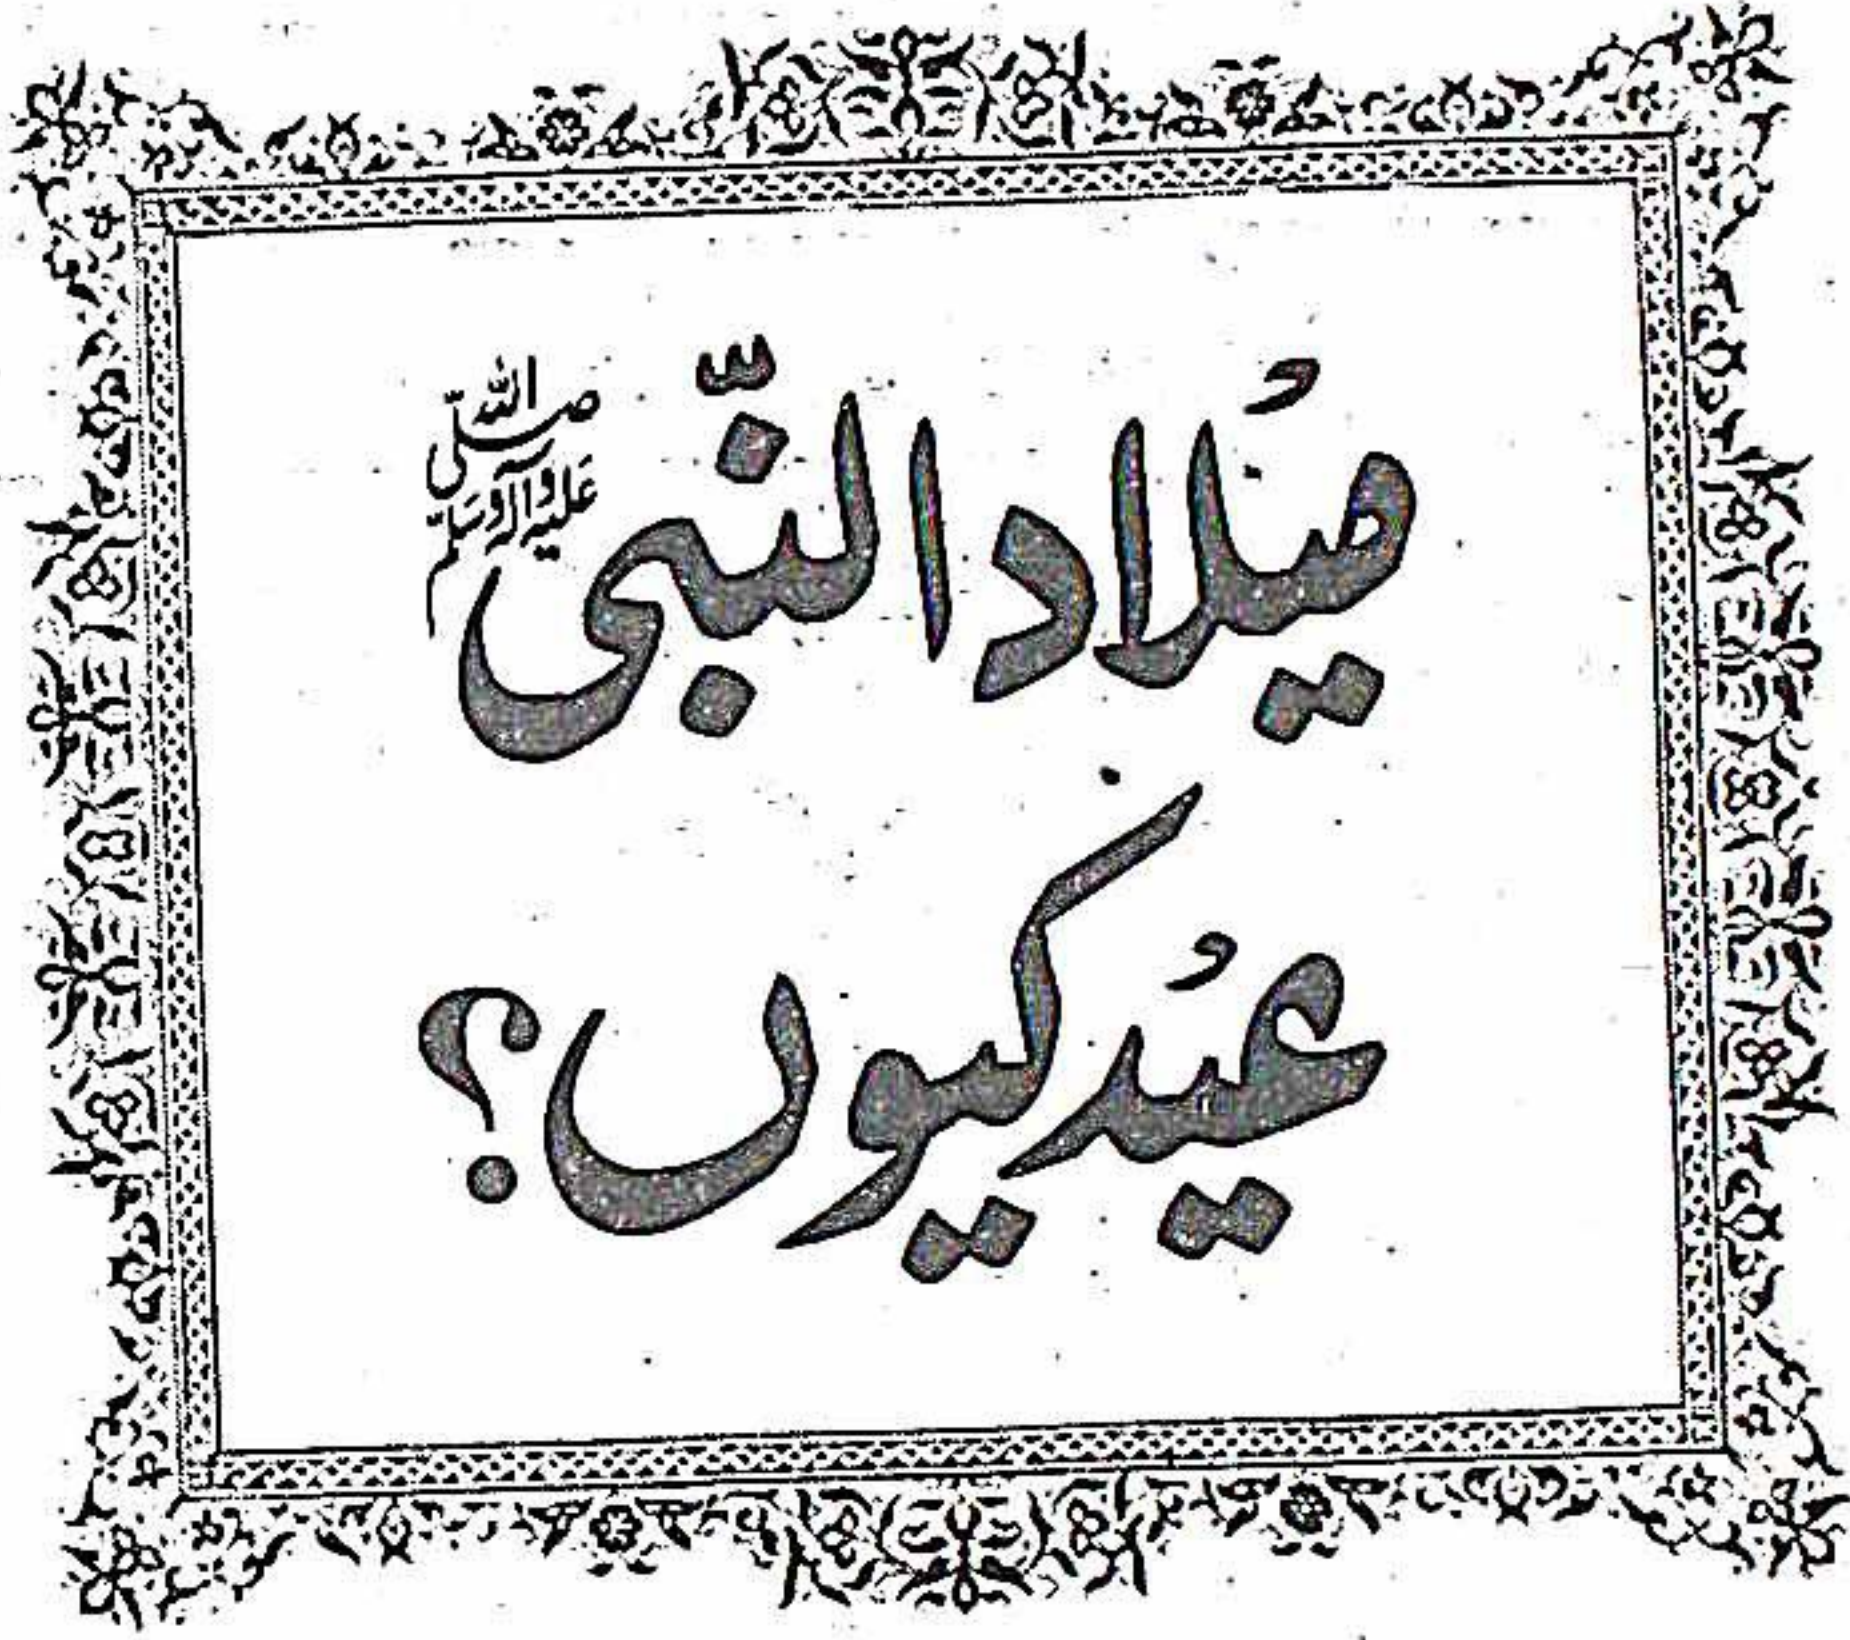 میلاد النبی صلی اللہ علیہ وآلہ وسلم
عید کیوں؟